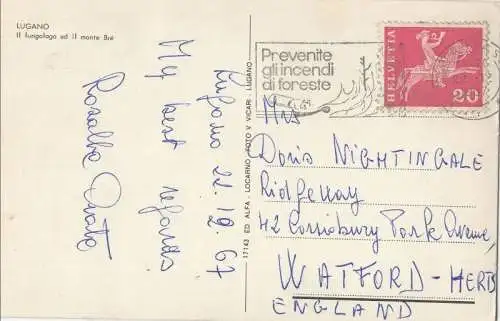 LUGANO
Il lungolago ed il monte Brè
Lugano 22.12.67
My best regards
Rosalba
17143 ED. ALFA - LOCARNO - FOTO V. VICARI LUGANO
Prevenite
gli incendi
di foreste
HELVETIA
20
Mrs
Doris NIGHTINGALE
Ridgeway
42 Cassiobury Park Avenue
WATFORD - HERTS
ENGLAND